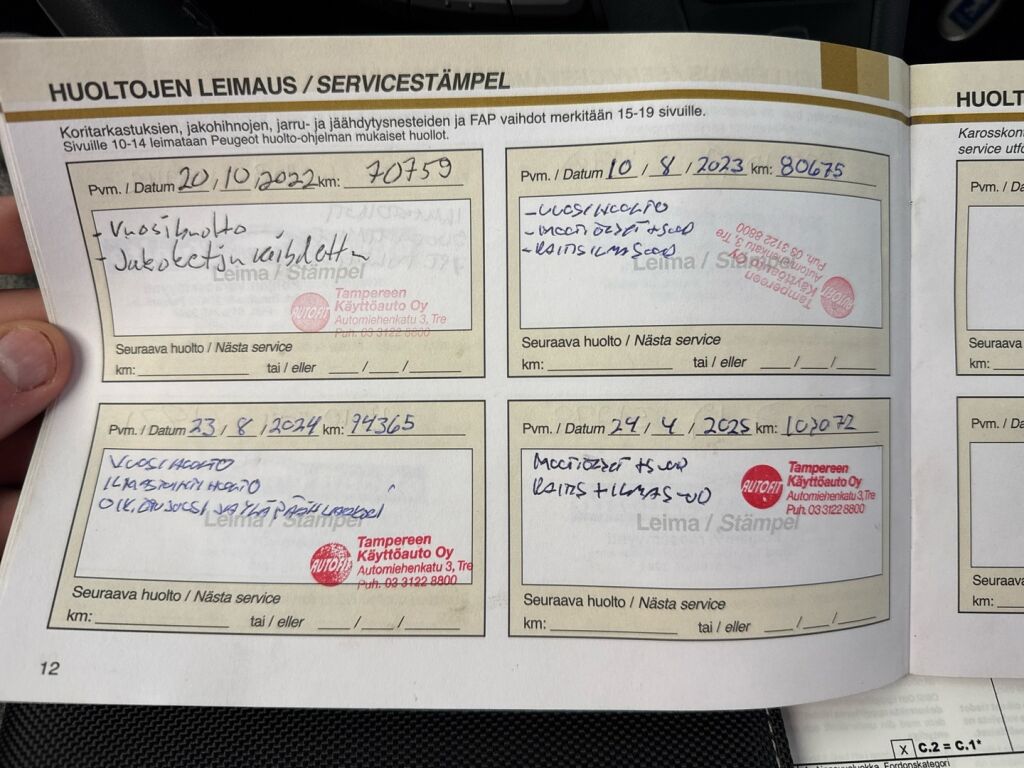 HUOLTOJEN LEIMAUS / SERVICESTÄMPEL
Koritarkastuksien, jakohihnojen, jarru- ja jäähdytysnesteiden ja FAP vaihdot merkitään 15-19 sivuille.
Sivuille 10-14 leimataan Peugeot huolto-ohjelman mukaiset huollot.
Pvm. / Datum 20 / 10 / 2022 km: 70759
- Vuosihuolto
- Jakoketju vaihdettu
Leima / Stämpel
AUTOFIT
Tampereen
Käyttöauto Oy
Automiehenkatu 3, Tre
Puh. 03 3122 8800
Seuraava huolto / Nästa service
km: tai / eller / /
Pvm. / Datum 10 / 8 / 2023 km: 80675
- VUOSIHUOLTO
- MOOTTORIÖLJYT + SUOD
- RAITISILMASUOD
Leima / Stämpel
AUTOFIT
Tampereen
Käyttöauto Oy
Automiehenkatu 3, Tre
Puh. 03 3122 8800
Seuraava huolto / Nästa service
km: tai / eller / /
Pvm. / Datum 23 / 8 / 2024 km: 94365
VUOSIHUOLTO
ILMASTOINTIHUOLTO
Leima / Stämpel
AUTOFIT
Tampereen
Käyttöauto Oy
Automiehenkatu 3, Tre
Puh. 03 3122 8800
Seuraava huolto / Nästa service
km: tai / eller / /
Pvm. / Datum 24 / 4 / 2025 km: 103072
+ SUOD
RAITIS + ILMAS-UO
Leima / Stämpel
AUTOFIT
Tampereen
Käyttöauto Oy
Automiehenkatu 3, Tre
Puh. 03 3122 8800
Seuraava huolto / Nästa service
km: tai / eller / /
12
HUOLT
Karosskon
service utfö
Pvm. / Da
Seuraava
km:
Pvm. / D
Seuraava
km:
X C.2 = C.1*
Fordonskategori